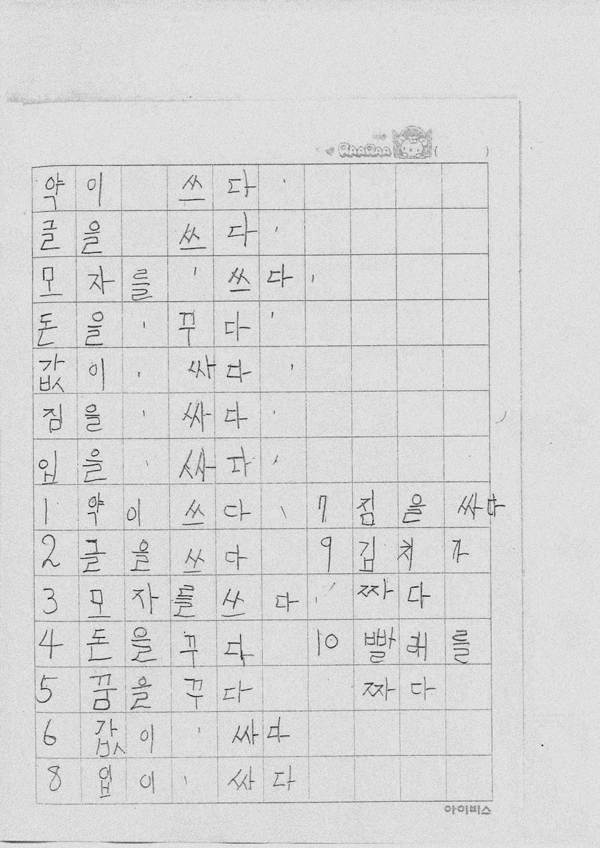 약이 쓰다
글을 쓰다
모자를 쓰다
돈을 꾸다
값이 싸다
짐을 싸다
입을 싸다
1 약이 쓰다 7 짐을 싸다
2 글을 쓰다 9 김치가
3 모자를 쓰다 짜다
4 돈을 꾸다 10 빨래를
5 꿈을 꾸다 짜다
6 값이 싸다
8 입이 싸다
아이비스